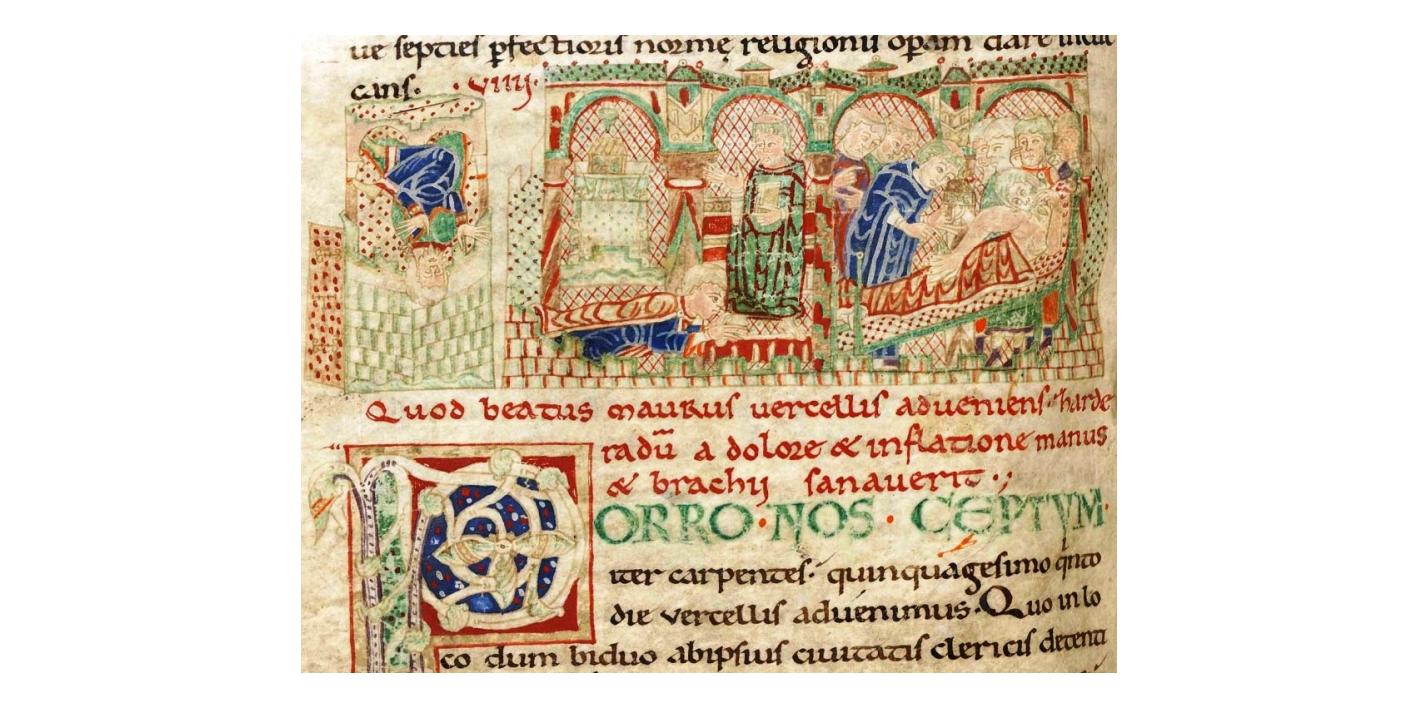 ue septies pfectioris normę religionū opam dare indi
cans. · VIIII·
Quod beatus maurus uercellis adueniens harde
radū a dolore & inflatione manus
& brachij sanauerit·;
PORRO·NOS·CEPTVM·
iter carpentes· quinquagesimo qinto
die vercellis aduenimus· Quo in lo
co dum biduo ab ipsius ciuitatis clericis detenti